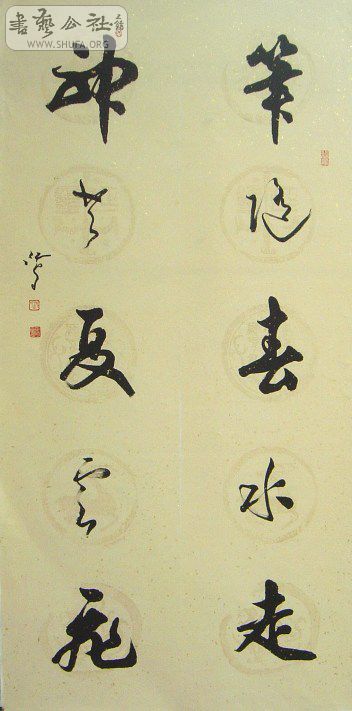 書藝公社
WWW.SHUFA.ORG
筆随春水走
神共夏雲飛